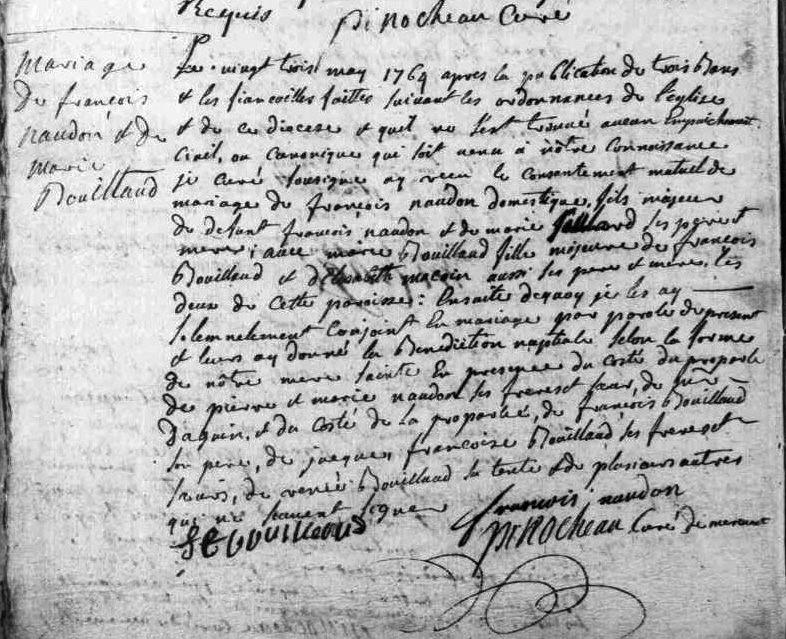 Requis pinocheau Curé
Mariage
De françois
naudon et de
marie
Bouillaud
Le vingt trois may 1764 apres la publication de trois Bans
et les fiancailles faittes suivant les ordonnances de l'eglise
et de ce diocese et quil ne s'est trouvé aucun Empeichement
Civil, ou Canonique qui soit venu à nôtre Connoissance
je curé soussigné ay receu le Consantement mutuel de
mariage de françois naudon domestique, fils majeur
de defunt françois naudon et de marie ses pere et
mere; avec marie Bouillaud fille majeure de françois
Bouillaud et d'Elisabeth macoin aussi ses pere et mere. les
deux de cette paroisse: Ensuitte dequoy je les ay
solemnelement Conjoint En mariage par parole de present
et leurs ay donné la Benediction nuptiale selon la forme
de nôtre mere sainte En presence du costé du proparlé
de pierre et marie naudon ses freres et sœur, de
Daguin, et du costé de la proparleé, de françois Bouillaud
son pere, de jacques, françoise Bouillaud ses freres et
sœurs, de reneé Bouillaud sa tente et de plusieurs autres
qui ne sauent signer
françois naudon
f Bouillaud
pinocheau Curé de